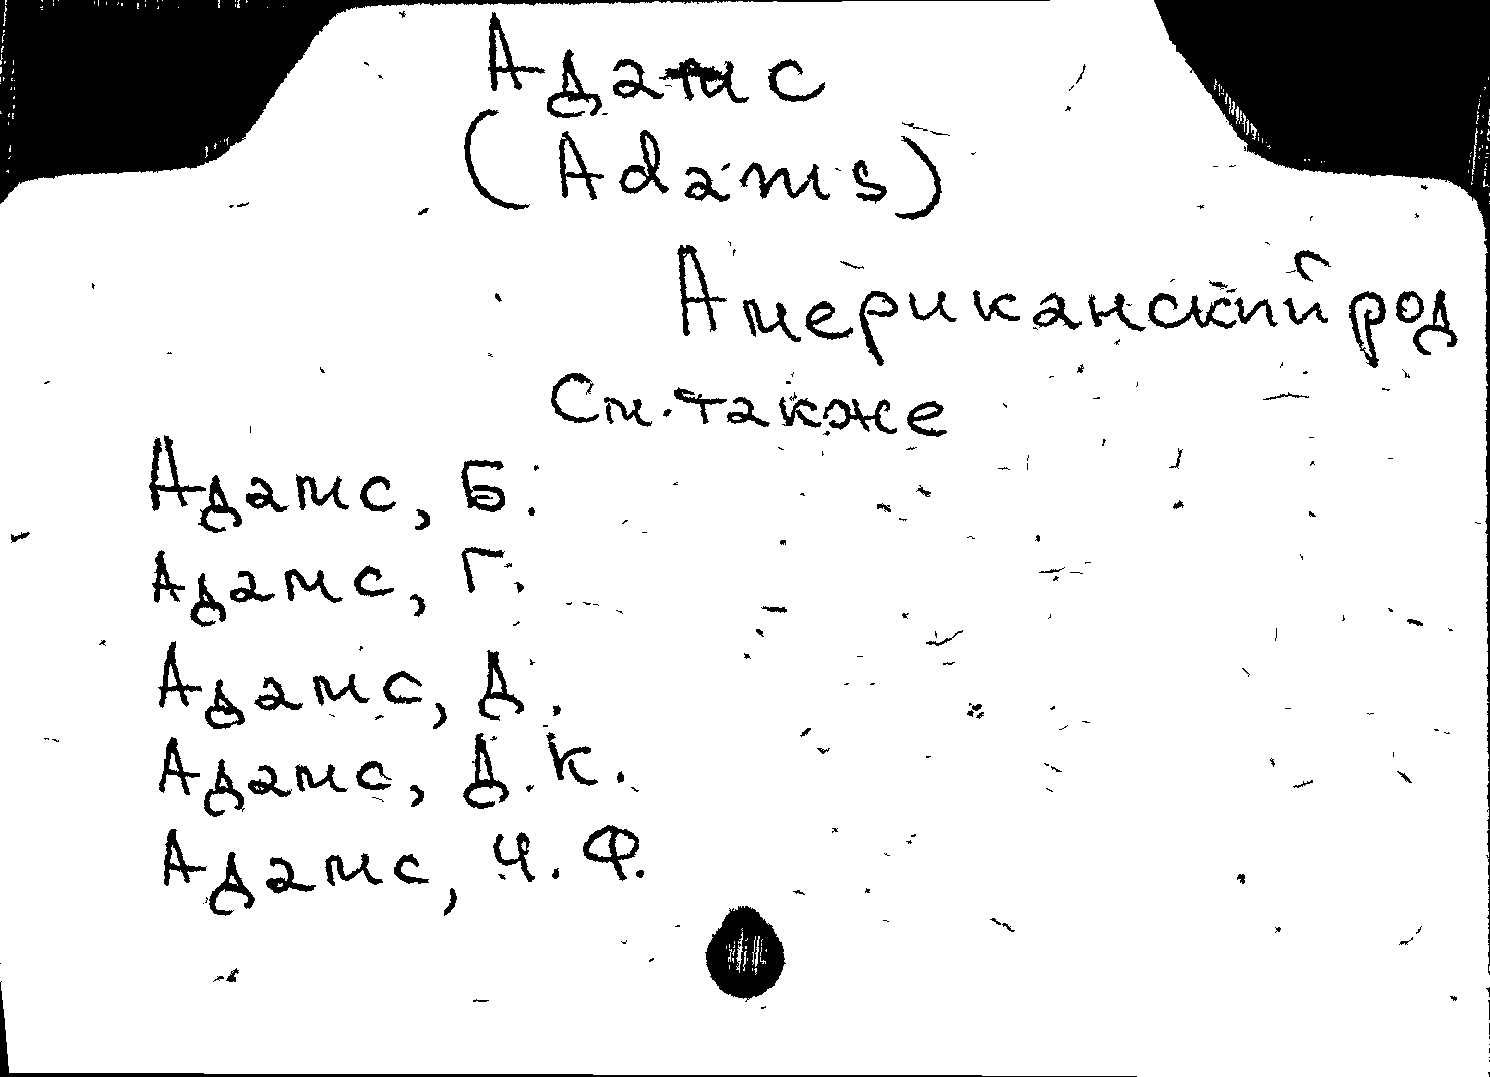 Адамс
(Adams)
Американский род
См. также
Адамс, Б.
Адамс, Г.
Адамс, Д.
Адамс, Д.К.
Адамс, Ч.Ф.